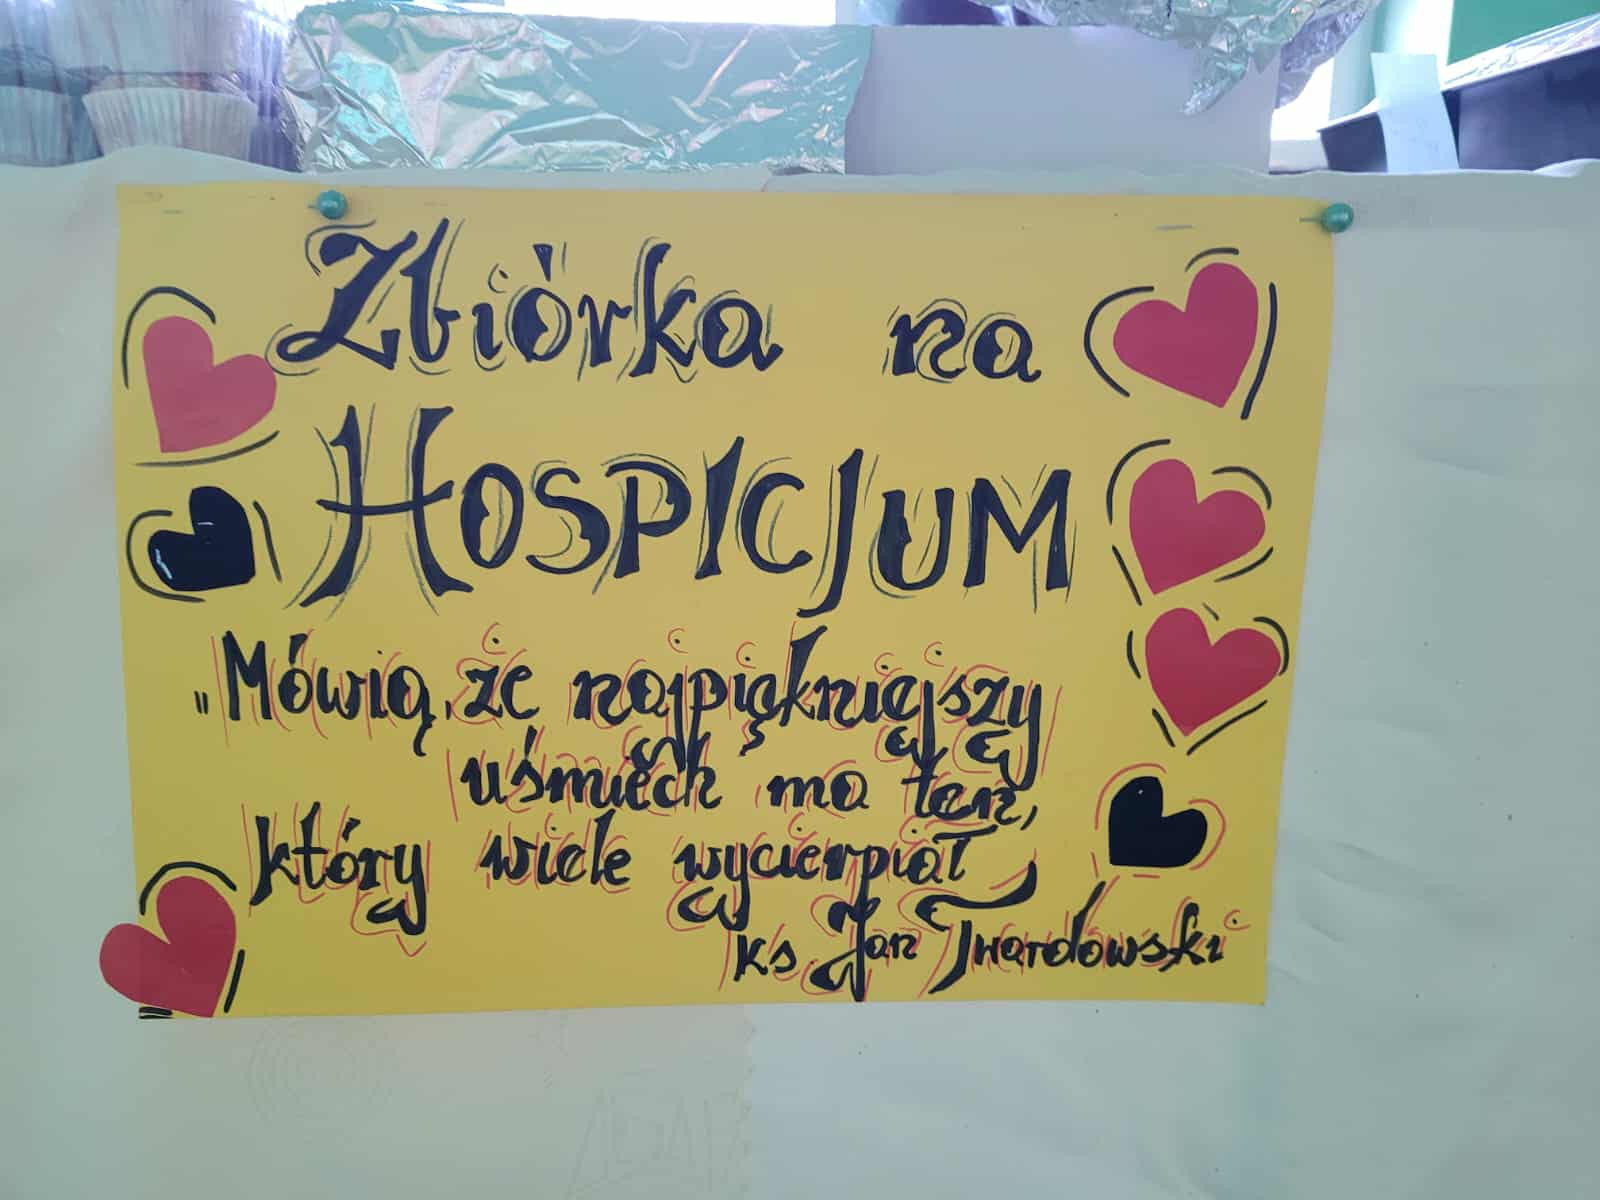 Zbiórka na
HOSPICJUM
"Mówią, że najpiękniejszy
uśmiech ma ten,
który wiele wycierpiał
ks Jan Twardowski